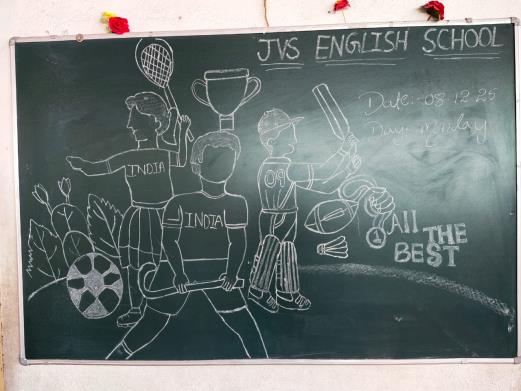 JVS ENGLISH SCHOOL
Date:- 08-12-25
Day:- Monday
INDIA
INDIA
09
1
All THE
BEST